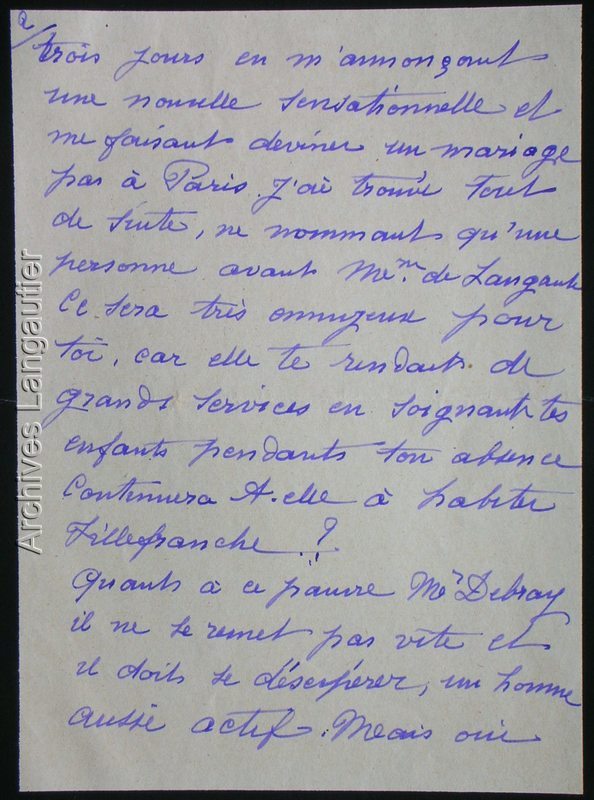 2/
trois jours en m'annonçant
une nouvelle sensationnelle et
me faisant deviner un mariage
pas à Paris. J'ai trouvé tout
de suite, ne nommant qu'une
personne avant Me^me. de Langaut
Ce sera très ennuyeux pour
toi, car elle te rendait de
grands services en soignant tes
enfants pendants ton absence
Continuera t-elle à habiter
Villefranche ?
Quants à ce pauvre M^r Debray
il ne se remet pas vite et
il doit se désespérer, un homme
aussi actif. Mais oui
Archives Langautier